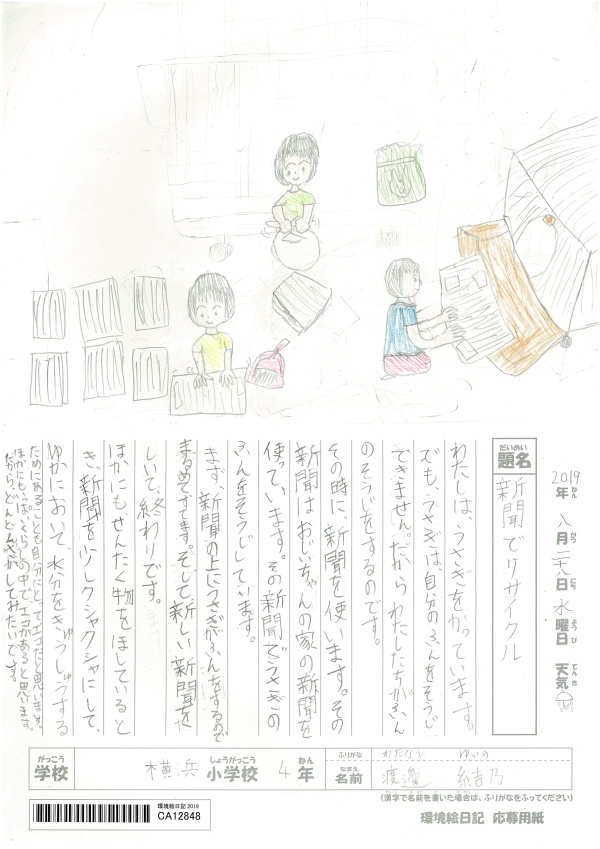 2019年ねん 八月がつ 二十八日にち 水曜日ようび 天気てんき
題名だいめい
新聞でリサイクル
わたしは、うさぎをかっています。
でも、うさぎは、自分のふんをそうじ
できません。だからわたしたちがふん
のそうじをするのです。
その時に、新聞を使います。その
新聞はおじいちゃんの家の新聞を
使っています。その新聞でうさぎの
ふんをそうじしています。
まず、新聞の上にうさぎがふんをするので
まるめてすてます。そして、新しい新聞を
しいて、終わりです。
ほかにもせんたく物をほしていると
き、新聞を少しクシャクシャにして、
ゆかにおいて、水分をきゅうしゅうする
ためにあることも自分にとってエコだと思います。
ほかにもいっぱいくらしの中でエコがあると思います。
だからどんどんさがしてみたいです。
学校がっこう 横浜 小学校しょうがっこう 4年ねん
ふりがな わたなべ ゆいの
名前なまえ 渡邉 結乃
(漢字で名前を書いた場合は、ふりがなをふってください)
環境絵日記2019
CA12848
環境絵日記 応募用紙